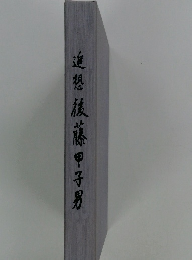 追想 後藤甲子男